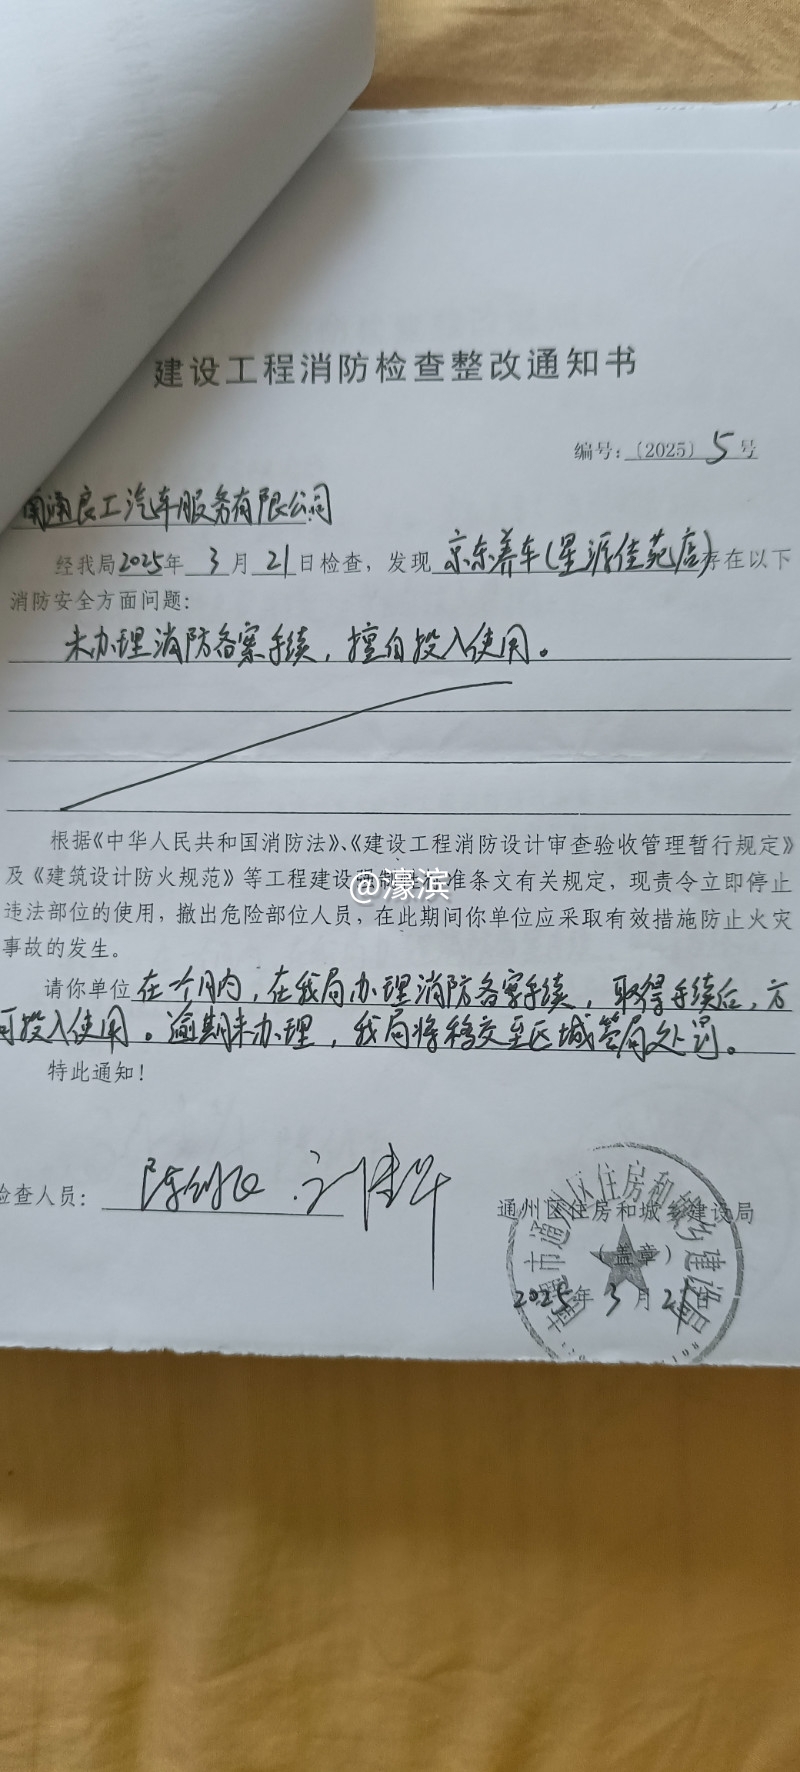 建设工程消防检查整改通知书
编号:〔2025〕5号
南通良工汽车服务有限公司
经我局2025年3月21日检查,发现京东养车(星源佳苑店)存在以下
消防安全方面问题:
未办理消防备案手续,擅自投入使用。
根据《中华人民共和国消防法》、《建设工程消防设计审查验收管理暂行规定》
及《建筑设计防火规范》等工程建设 准条文有关规定,现责令立即停止
违法部位的使用,撤出危险部位人员,在此期间你单位应采取有效措施防止火灾
事故的发生。
请你单位在一个月内,在我局办理消防备案手续,取得手续后,方
可投入使用。逾期未办理,我局将移交至区城管局处罚。
特此通知!
检查人员:
通州区住房和城乡建设局
(盖章)
2025年3月21
@濠滨